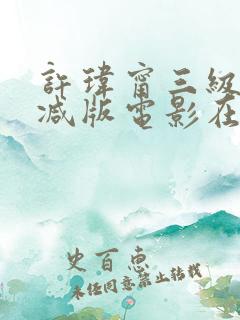 許瑋甯三級
减版電影在
史百惠
未任同意禁止转载